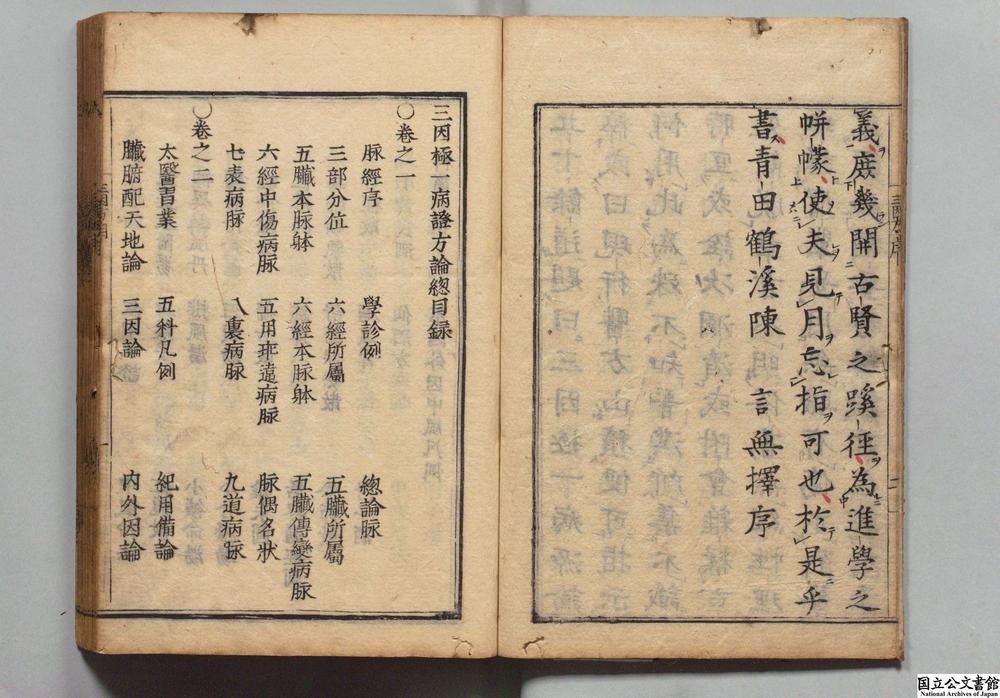 義庶幾開古賢之蹊徑為進學之
帡幪使夫見月忘指可也於是乎
書青田鶴溪陳言無擇序
三因極一病證方論總目録
〇卷之一
脉經序 學診例 總論脉
三部分位 六經所屬 五臟所屬
五臟本脉躰 六經本脉躰 五臟傳變病脉
六經中傷病脉 五用乖違病脉 脉偶名狀
七表病脉 八裏病脉 九道病脉
〇卷之二
太醫習業 五科凡例 紀用備論
臟腑配天地論 三因論 内外因論
国立公文書館
National Archives of Japan